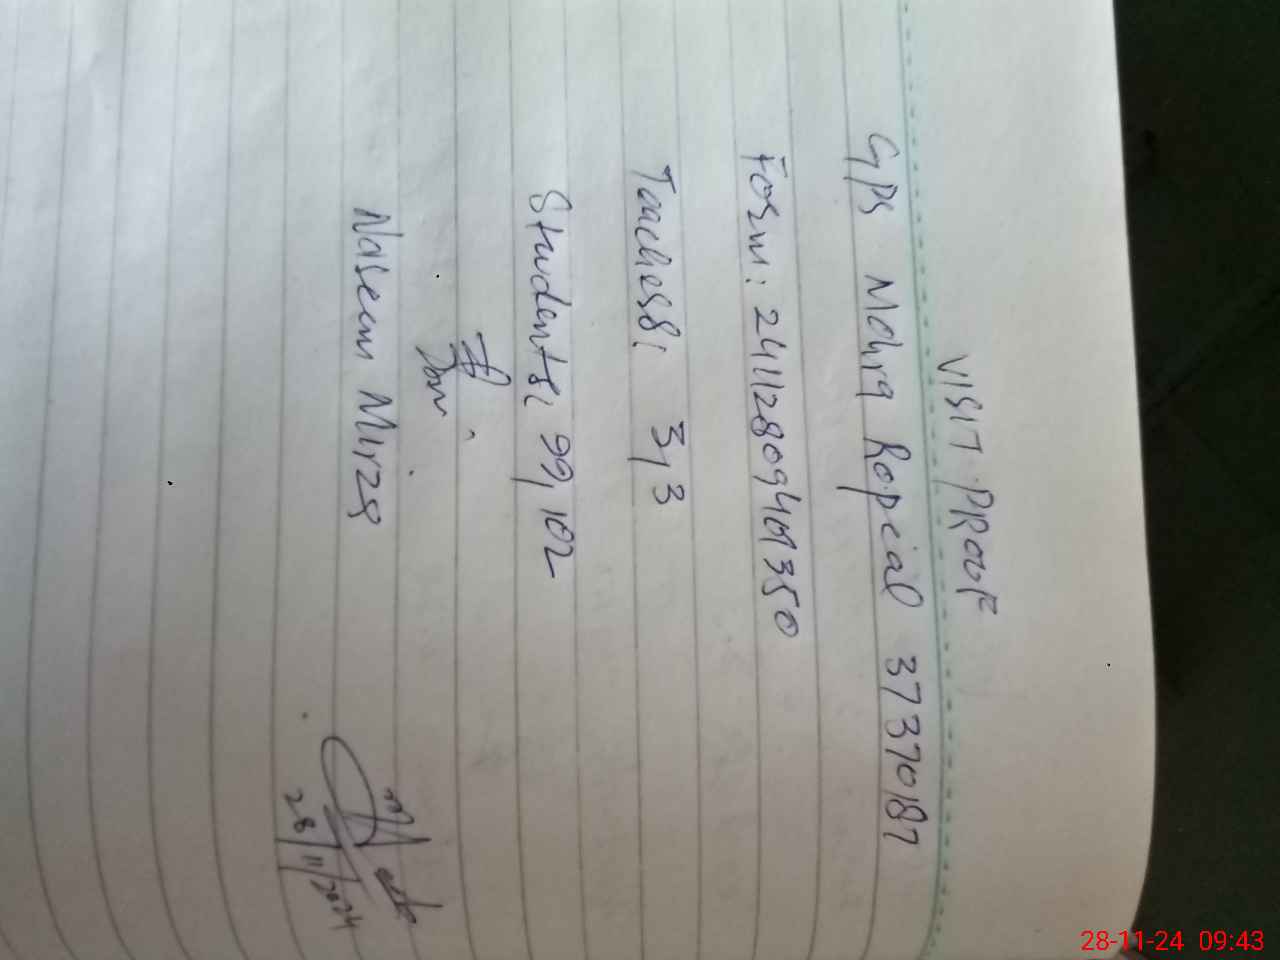 VISIT PROOF
GPS Mohra Ropeal 37370187
Form: 24112809401350
Teachers: 3, 3
Students: 99, 102
Naseem Mirza
28/11/2024
28-11-24 09:43